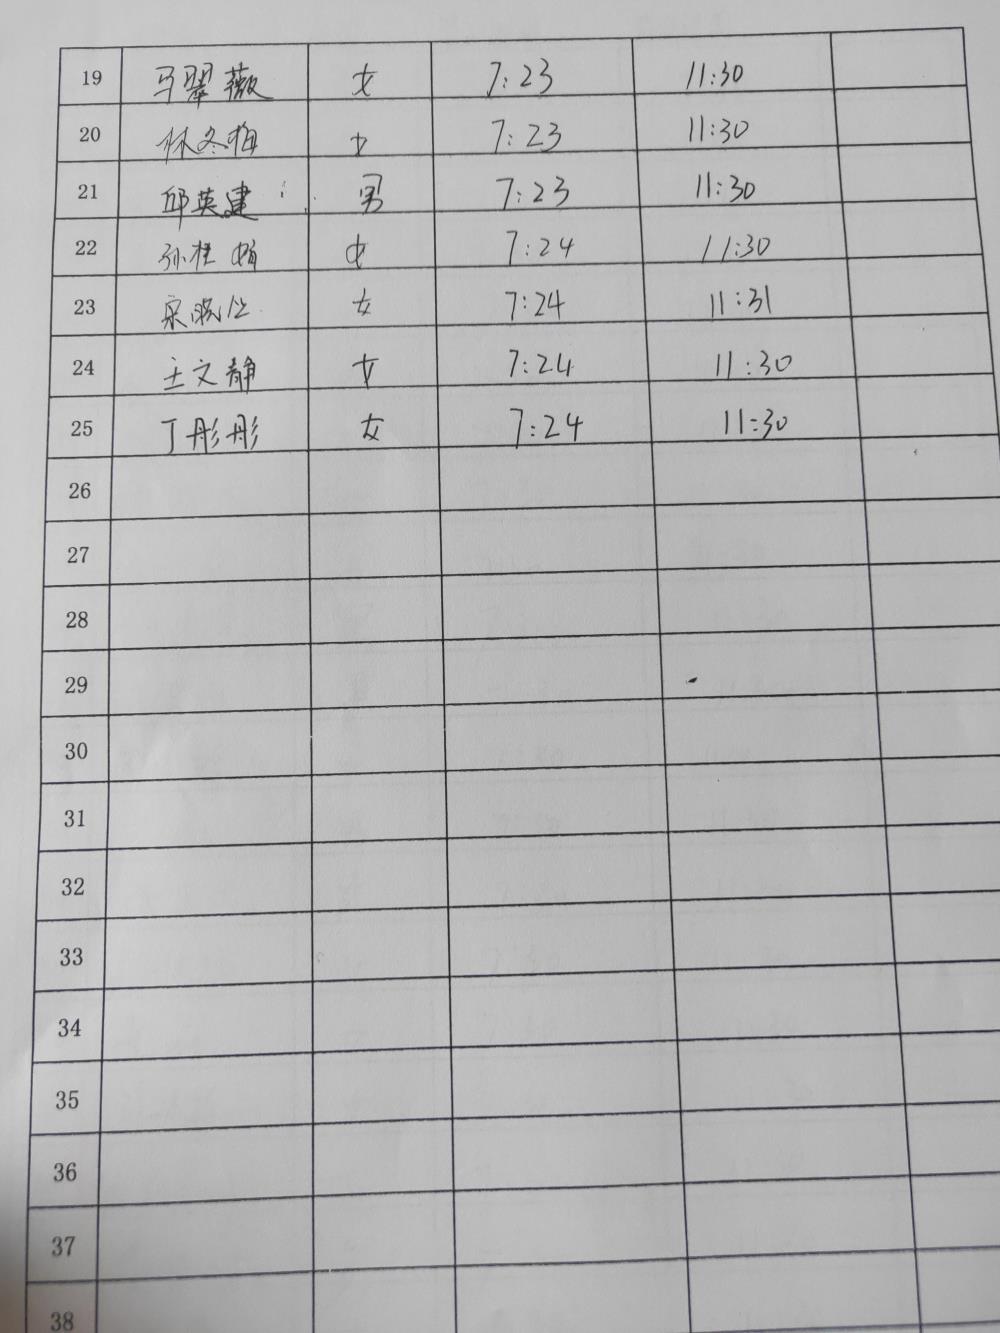 19 马翠薇 女 7:23 11:30
20 林冬梅 女 7:23 11:30
21 邱英建 男 7:23 11:30
22 孙桂娟 女 7:24 11:30
23 宋晓 女 7:24 11:31
24 王文静 女 7:24 11:30
25 丁彤彤 女 7:24 11:30
26
27
28
29
30
31
32
33
34
35
36
37
38